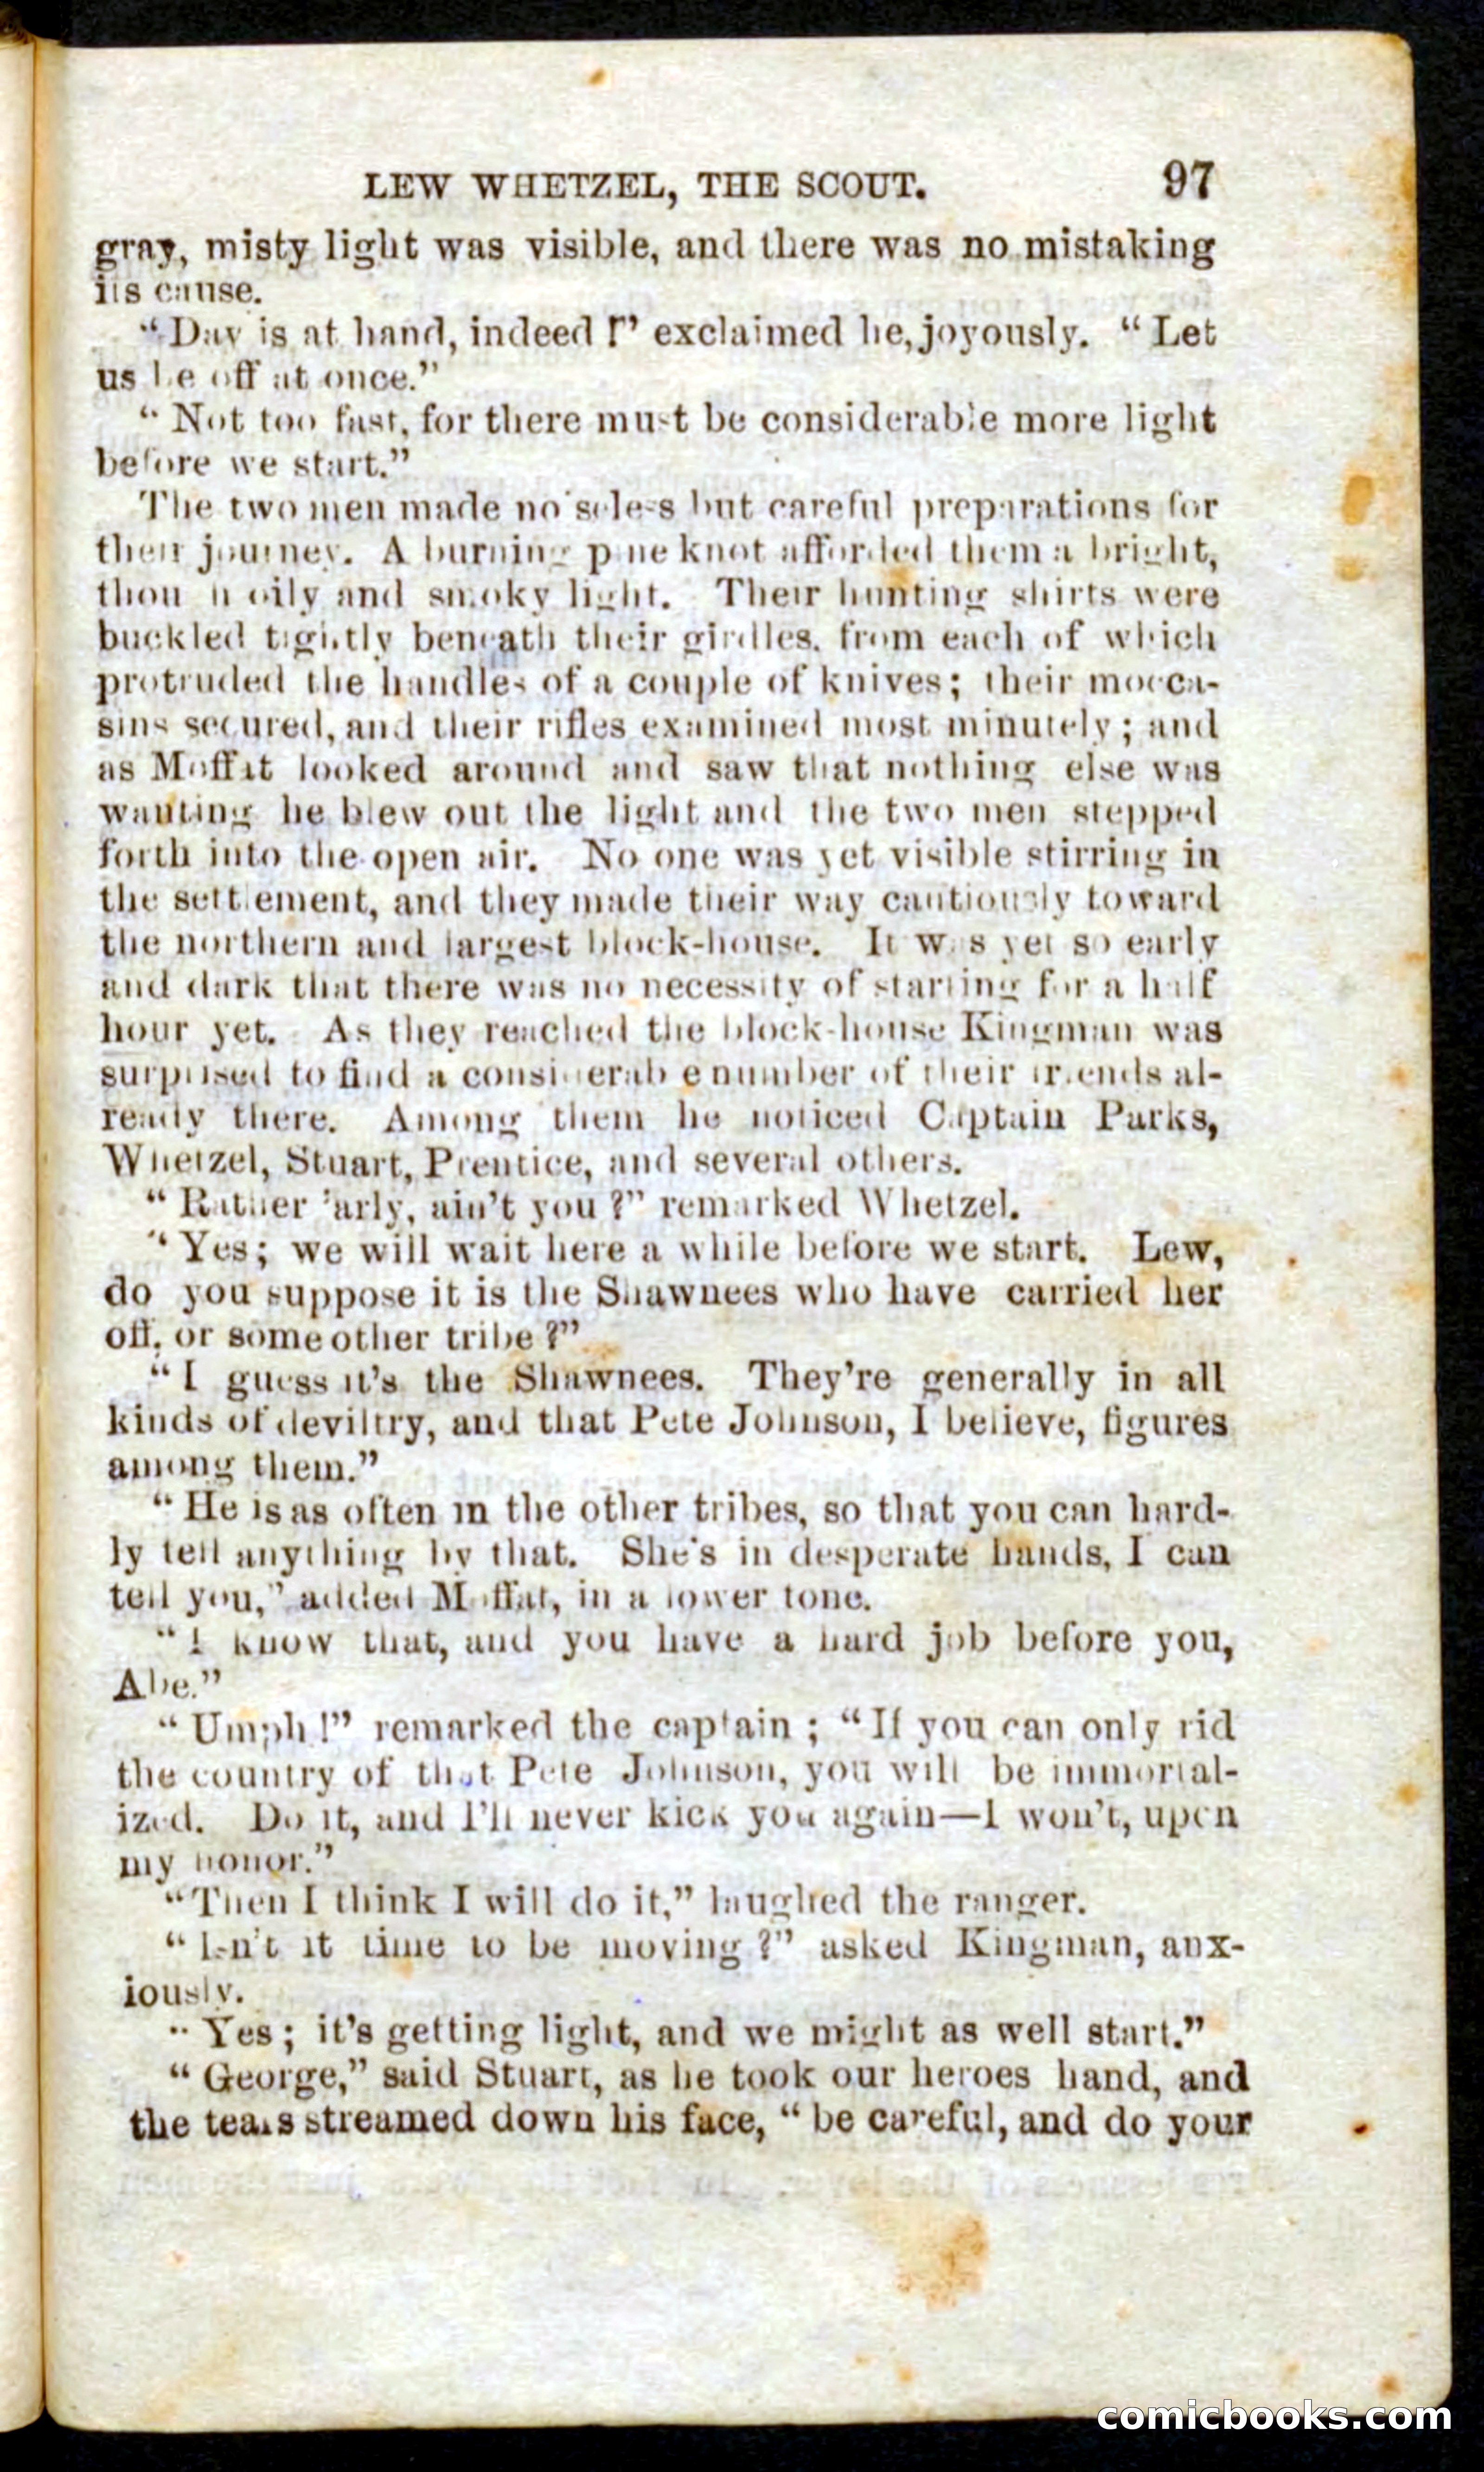 LEW WHETZEL, THE SCOUT. 97
gray, misty light was visible, and there was no mistaking
its cause.
“Day is at hand, indeed !” exclaimed he, joyously. “Let
us be off at once.”
“Not too fast, for there must be considerable more light
before we start.”
The two men made noiseless but careful preparations for
their journey. A burning pine knot afforded them a bright,
though oily and smoky light. Their hunting shirts were
buckled tightly beneath their girdles, from each of which
protruded the handles of a couple of knives; their mocca-
sins secured, and their rifles examined most minutely; and
as Moffat looked around and saw that nothing else was
wanting he blew out the light and the two men stepped
forth into the open air. No one was yet visible stirring in
the settlement, and they made their way cautiously toward
the northern and largest block-house. It was yet so early
and dark that there was no necessity of starting for a half
hour yet. As they reached the block-house Kingman was
surprised to find a considerable number of their friends al-
ready there. Among them he noticed Captain Parks,
Whetzel, Stuart, Prentice, and several others.
“Rather ’arly, ain’t you ?” remarked Whetzel.
“Yes; we will wait here a while before we start. Lew,
do you suppose it is the Shawnees who have carried her
off, or some other tribe ?”
“I guess it’s the Shawnees. They’re generally in all
kinds of deviltry, and that Pete Johnson, I believe, figures
among them.”
“He is as often in the other tribes, so that you can hard-
ly tell anything by that. She’s in desperate hands, I can
tell you,” added Moffat, in a lower tone.
“I know that, and you have a hard job before you,
Abe.”
“Umph !” remarked the captain ; “If you can only rid
the country of that Pete Johnson, you will be immortal-
ized. Do it, and I’ll never kick you again—I won’t, upon
my honor.”
“Then I think I will do it,” laughed the ranger.
“Isn’t it time to be moving ?” asked Kingman, anx-
iously.
“Yes; it’s getting light, and we might as well start.”
“George,” said Stuart, as he took our heroes hand, and
the tears streamed down his face, “be careful, and do your
comicbooks.com